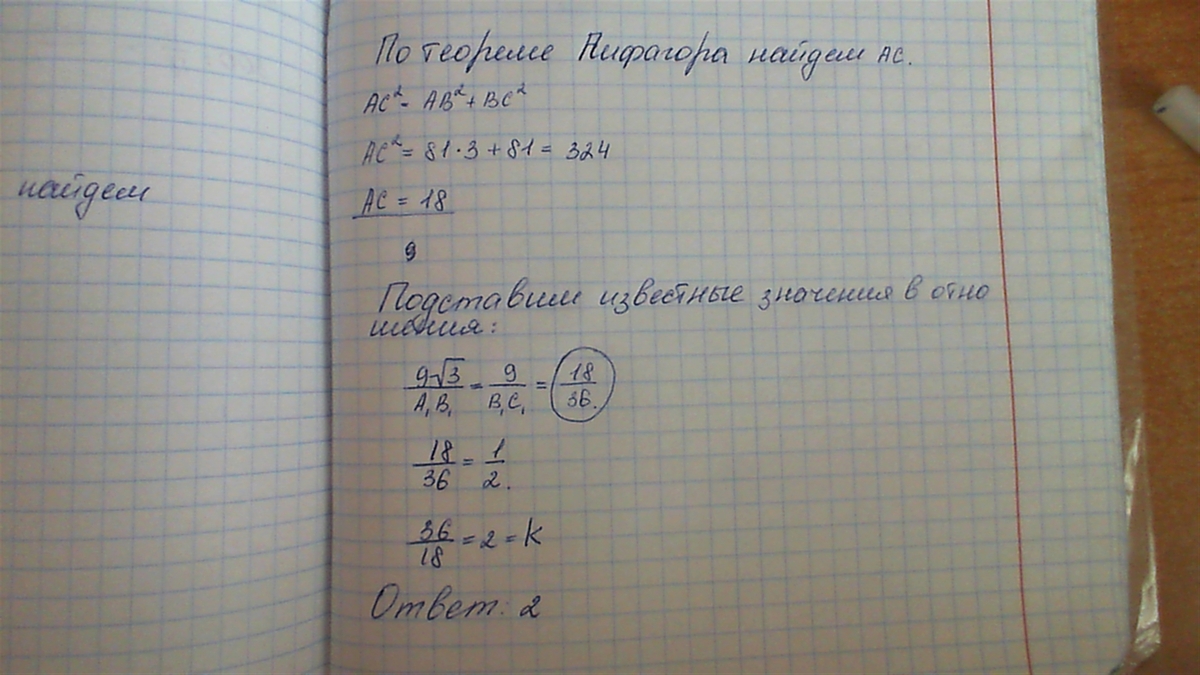 найдем
По теореме Пифагора найдем AC.
AC² - AB² + BC²
AC² = 81·3 + 81 = 324
AC = 18
9
Подставим известные значения в отно
шения:
9√3/A₁B₁ = 9/B₁C₁ = 18/36.
18/36 = 1/2.
36/18 = 2 = k
Ответ: 2